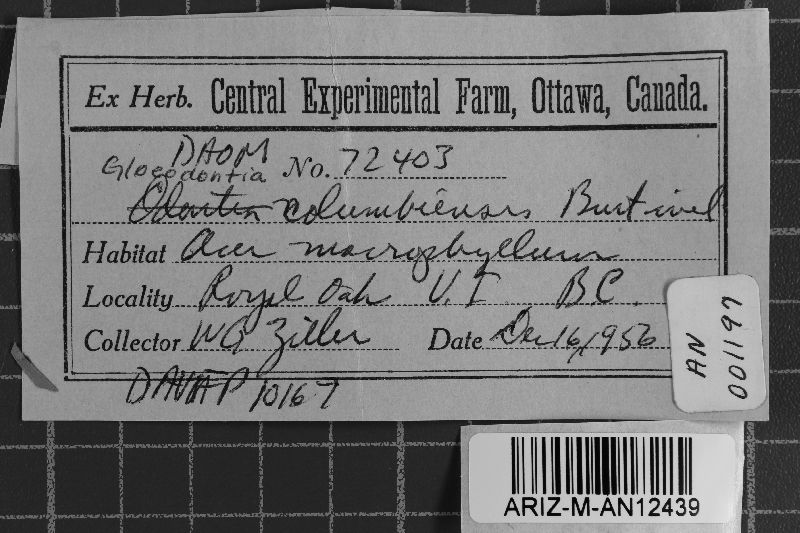 Ex Herb. Central Experimental Farm, Ottawa, Canada.
DAOM
Gloeodontia No. 72403
Odontia columbiensis Burt
Habitat Acer macrophyllum
Locality Royal Oak V.I. BC.
Collector WG Ziller Date Dec 16, 1956
DAVFP 10167
AN 001197
ARIZ-M-AN12439